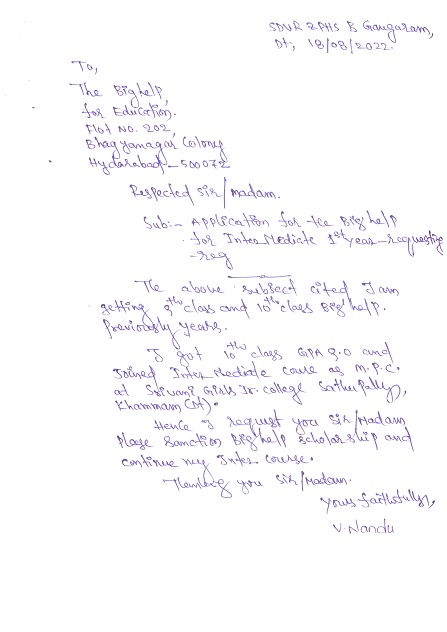 SDVR ZPHS B Gangaram,
Dt; 18/08/2022.
To,
The Big help,
for Education.
Flot No. 202,
Bhagyanagar Colony
Hydarabad - 500072
Respected Sir/madam.
Sub:- Application for the Big help
for Inter Mediate 1st year - requesting
- reg
The above subject cited I am
getting 9th class and 10th class Big help.
Previously years.
I got 10th class GPA 9.0 and
Joined Inter Mediate course as M.P.C.
at Srivani Girls Jr. college Sathupally,
Khammam (M).
Hence I request you Sir/Madam
Plege Sanction Big help scholarship and
continue my Inter course.
Thanking you Sir/Madam.
Yours faithfully,
V. Nandu